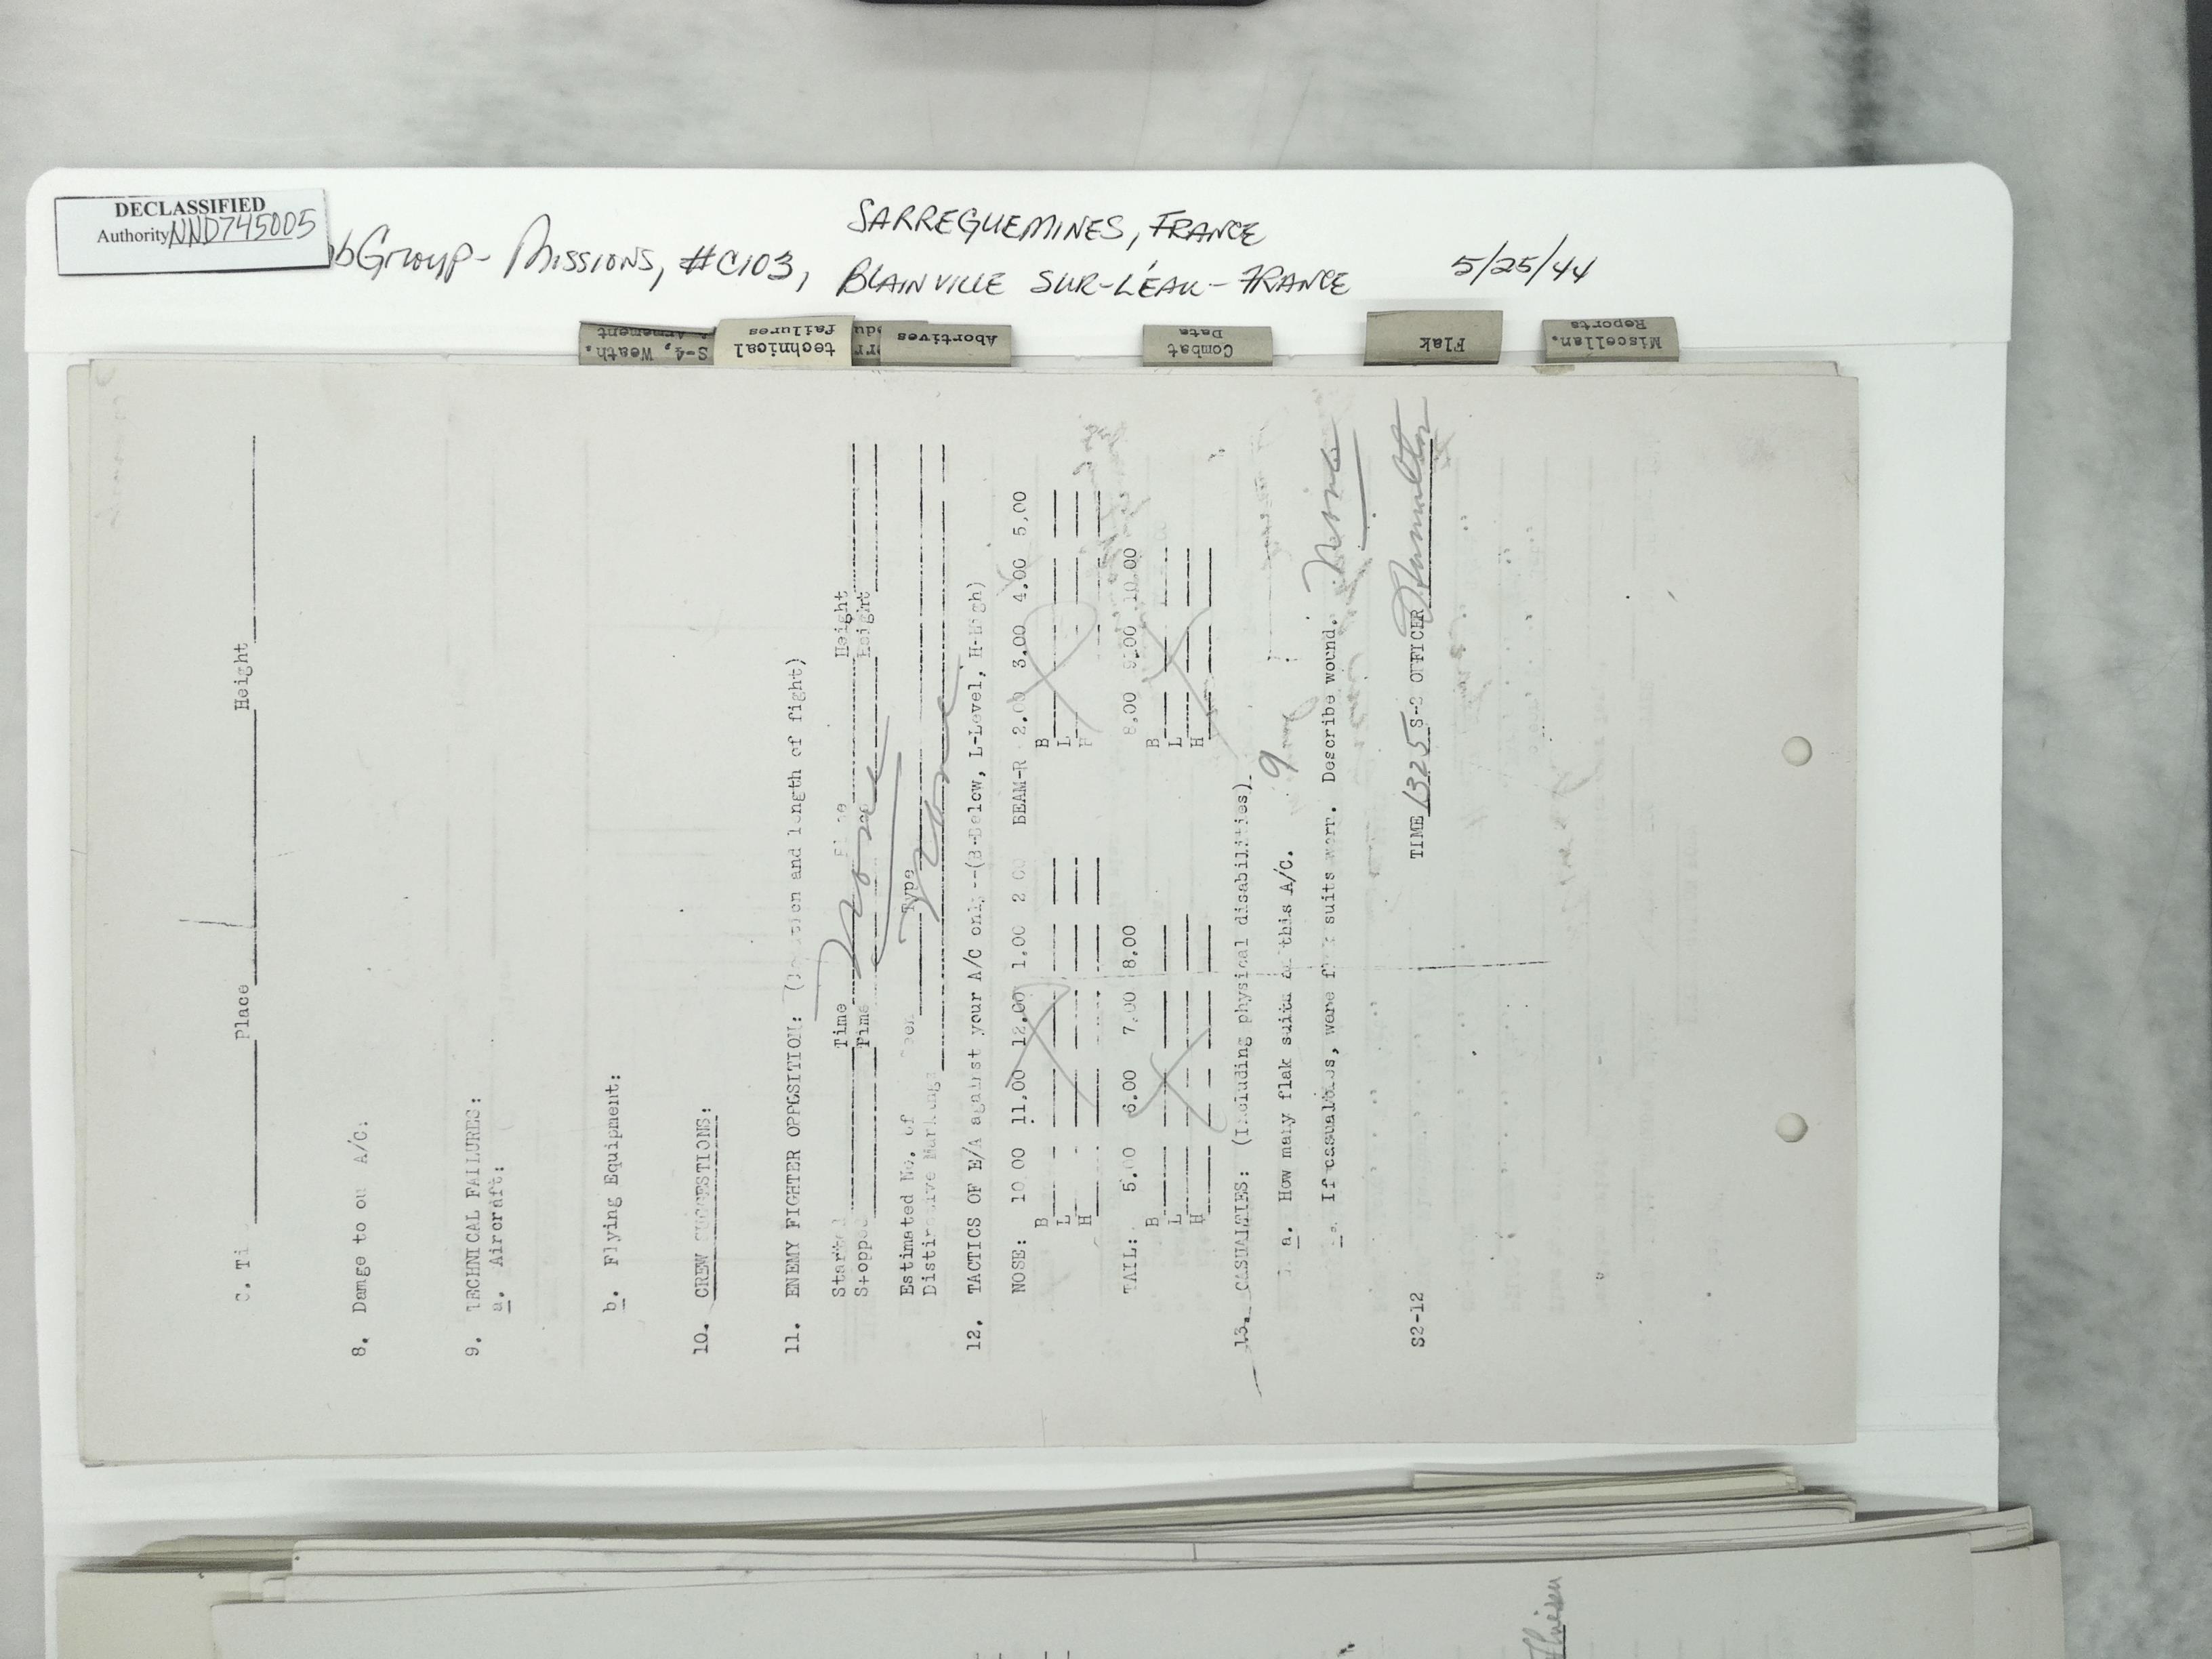 DECLASSIFIED
Authority NND745005
bGroup - Missions, #C103,
SARREGUEMINES, FRANCE
BLAINVILLE SUR-L'EAU - FRANCE
5/25/44
S-4, Weath.
Armement
technical
failures
Abortives
Combat
Data
Flak
Miscellan.
Reports
C. Ti Place Height
8. Damage to ou A/C:
9. TECHNICAL FAILURES:
a. Aircraft:
b. Flying Equipment:
10. CREW SUGGESTIONS:
11. ENEMY FIGHTER OPPOSITION: ( and length of fight)
Start Time Height
Stopp Time Height
None
Estimated No. of Type
Distinctive Markings
None
12. TACTICS OF E/A against your A/C only--(B-Below, L-Level, H-High)
NOSE: 10.00 11.00 12.00 1.00 2.00 BEAM-R 2.00 3.00 4.00 5.00
B B
L L
H H
TAIL: 5.00 6.00 7.00 8.00 8.00 9.00 10.00
B B
L L
H H
13. CASUALTIES: (Including physical disabilities).
a. How many flak suits this A/C. 9
If casualties, were suits worn. Describe wound. None
S2-12 TIME 1325 S-2 OFFICER Hamilton